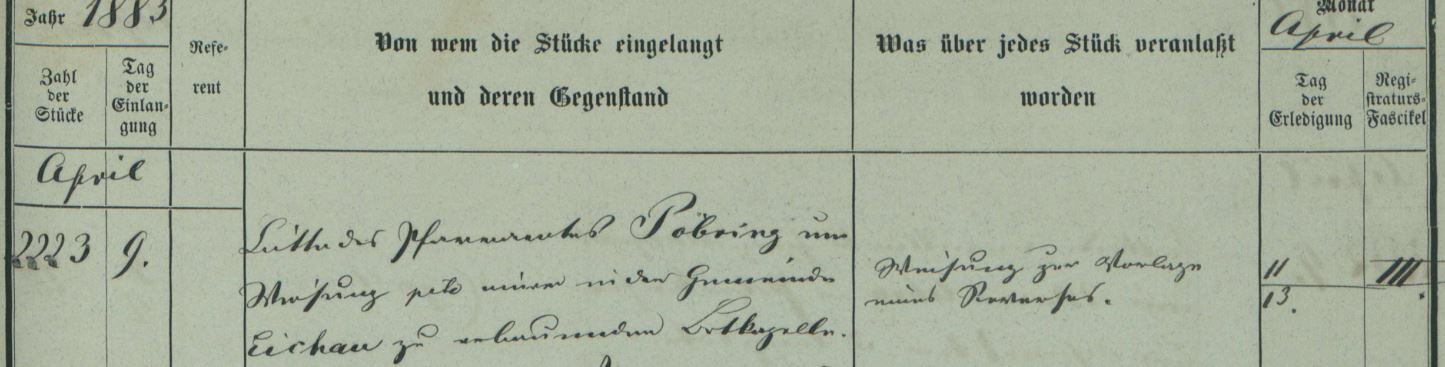 Jahr 1883
Monat
April
Zahl
der
Stücke
Tag
der
Einlan-
gung
Refe-
rent
Von wem die Stücke eingelangt
und deren Gegenstand
Was über jedes Stück veranlaßt
worden
Tag
der
Erledigung
Regi-
straturs-
Fascikel
April
2223
9.
Bitte des Pfarramtes Pöbring um
Weisung pto einer in der Gemeinde
Eichau zu erbauenden Betkapelle.
Weisung zur Vorlage
eines Reverses.
11
13.
III.